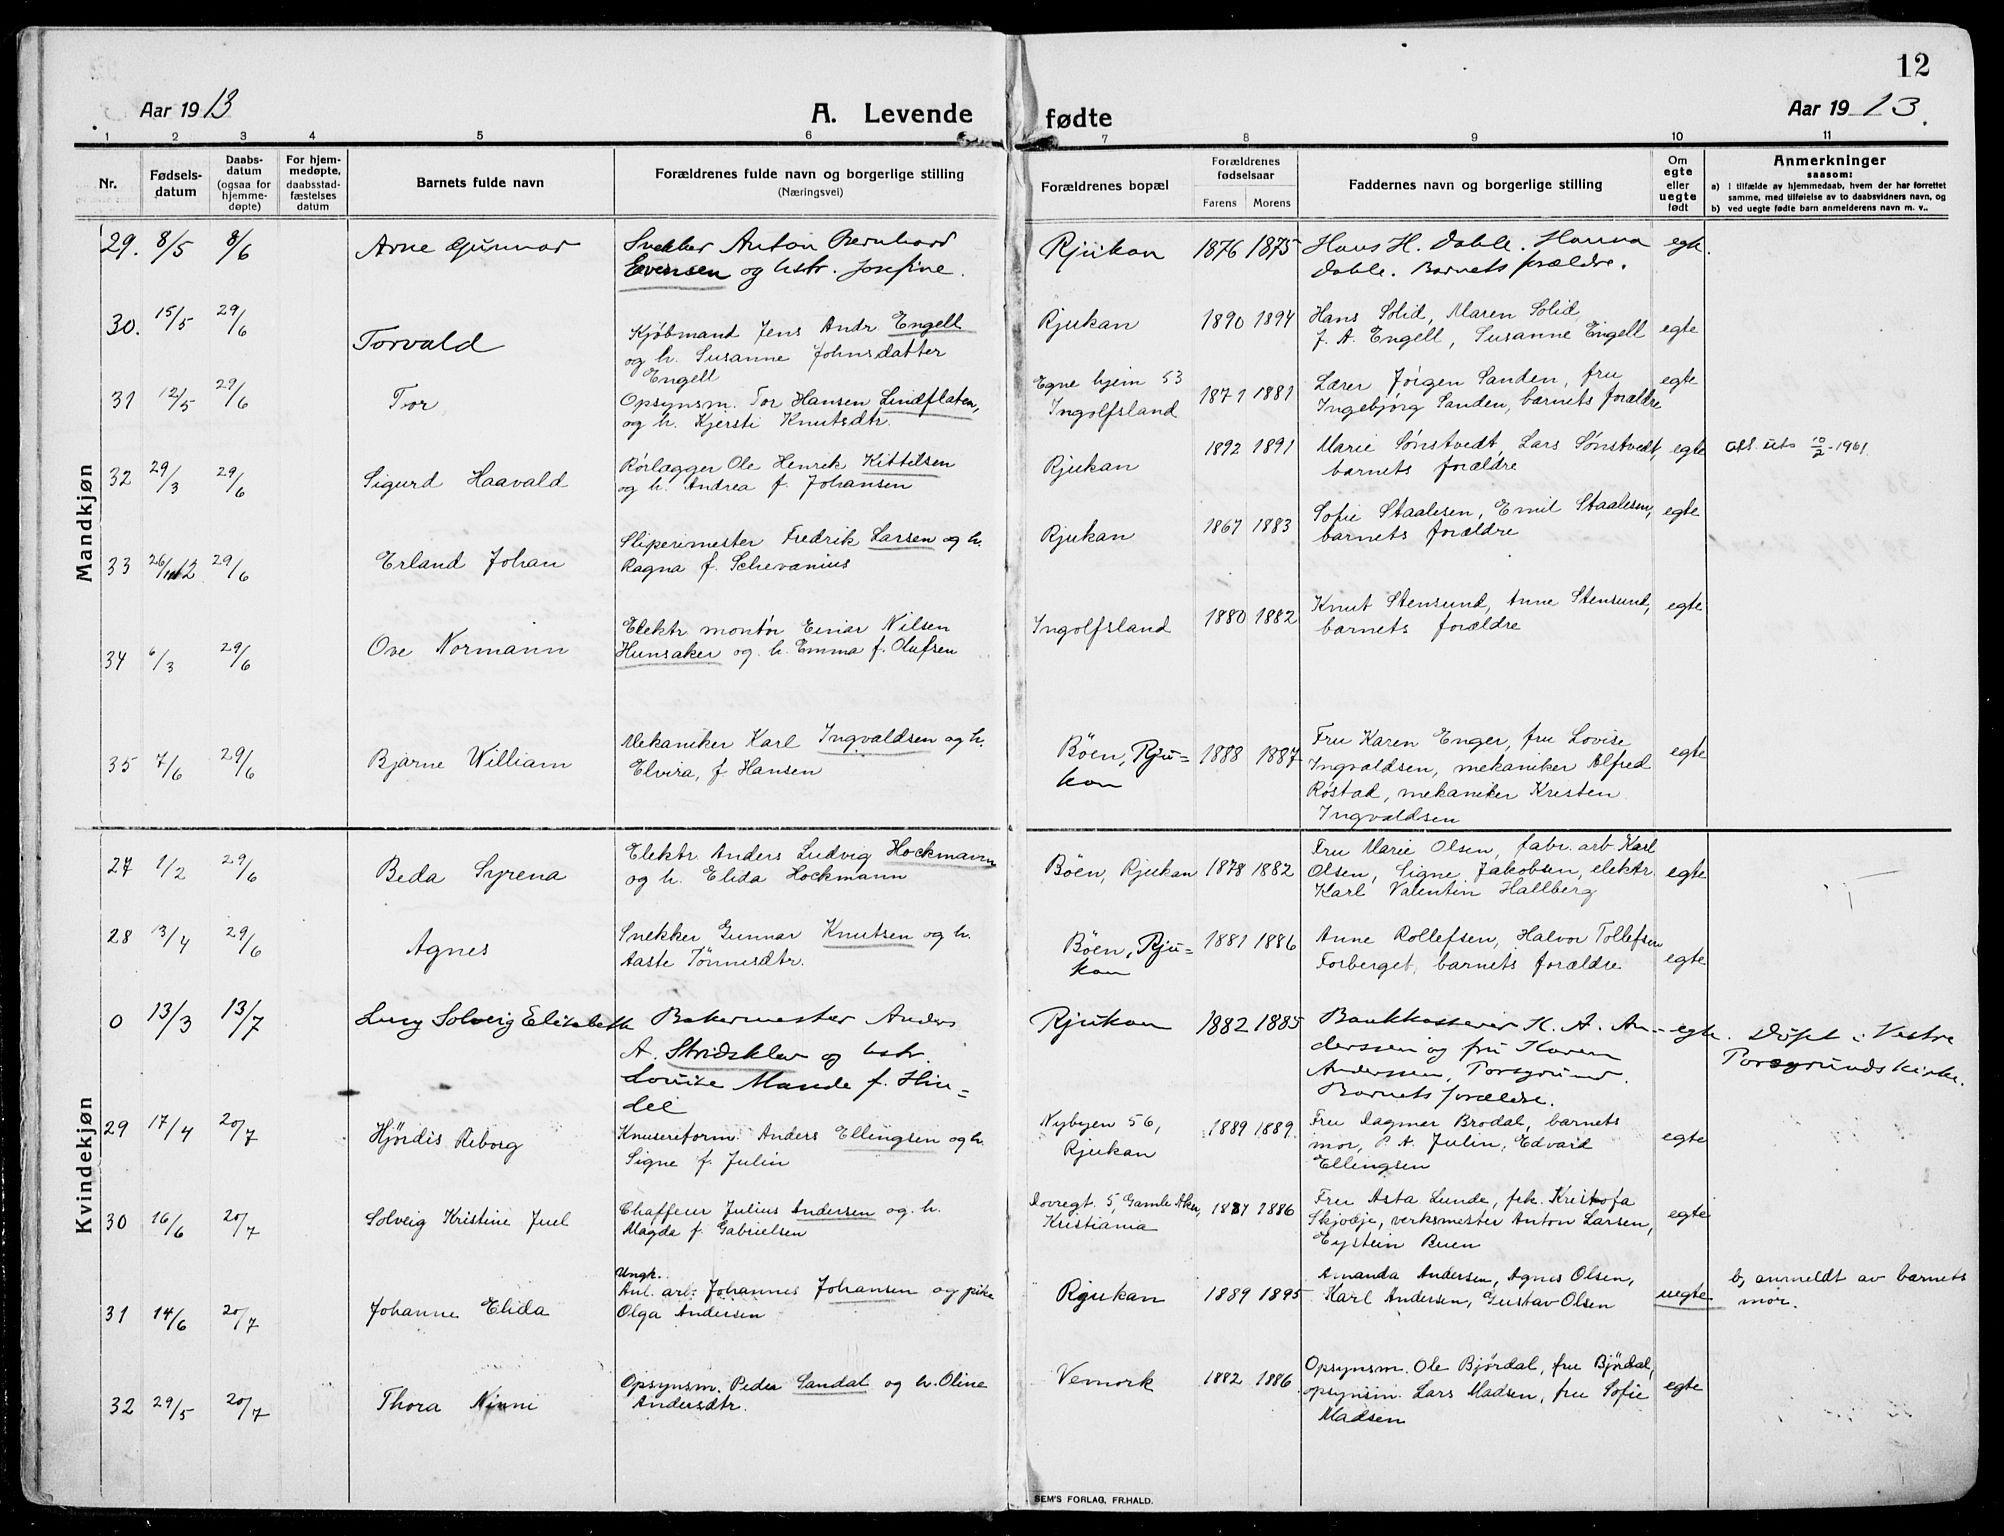 12
Aar 1913
A. Levende fødte
Aar 1913.
1 2 3 4 5 6 7 8 9 10 11
Nr.
Fødsels-
datum
Daabs-
datum
(ogsaa for
hjemme-
døpte)
For hjem-
medøpte,
daabsstad-
fæstelses
datum
Barnets fulde navn
Forældrenes fulde navn og borgerlige stilling
(Næringsvei)
Forældrenes bopæl
Forældrenes
fødselsaar
Farens Morens
Faddernes navn og borgerlige stilling
Om
egte
eller
uegte
født
Anmerkninger
saasom:
a) I tilfælde av hjemmedaab, hvem der har forrettet
samme, med tilføielse av to daabsvidners navn, og
b) ved uegte fødte barn anmelderens navn m. v..
Mandkjøn
29. 8/5 8/6 Arne Gunnar
Snekker Anton Bernhard
Evensen og hstr. Josefine.
Rjukan 1876 1875
Hans H. Dahle. Hanna
Dahle. Barnets forældre.
egte.
30. 15/5 29/6 Torvald
Kjøbmand Jens Andr Engell
og h. Susanne Johnsdatter
Engell
Rjukan 1890 1894
Hans Solid, Maren Solid,
J. A. Engell, Susanne Engell
egte
31 12/5 29/6 Tor
Opsynsm. Tor Hansen Lindflaten,
og h. Kjersti Knutsdtr.
Egne hjem 53
Ingolfsland
1871 1881
Lærer Jörgen Sanden, fru
Ingebjørg Sanden, barnets forældre
egte
32 29/3 29/6 Sigurd Haavald
Rørlægger Ole Henrik Kittilsen
og h. Andrea f. Johansen
Rjukan 1892 1891
Marie Sønstvedt, Lars Sønstvedt,
barnets forældre
egte
att. uts 10/2-1961
33 26/11 12 29/6 Erland Johan
Sliperimester Fredrik Larsen og h.
Ragna f. Schevanius
Rjukan 1867 1883
Sofie Staalesen, Emil Staalesen,
barnets forældre
egte
34 6/3 29/6 Ove Normann
Elektr montör Einar Nilsen
Hunsaker og h. Emma f. Olufsen
Ingolfsland 1880 1882
Knut Stensund, Anne Stensund,
barnets forældre
egte
35 7/6 29/6 Bjarne William
Mekaniker Karl Ingvaldsen og h.
Elvira, f. Hansen
Böen, Rju-
kan
1888 1887
Fru Karen Enger, fru Lovise
Ingvaldsen, mekaniker Alfred
Røstad, mekaniker Kristen
Ingvaldsen
egte
Kvindekjøn
27 1/2 29/6 Beda Syrena
Elektr. Anders Ludvig Hockmann
og h. Elida Hockmann
Böen, Rjukan 1878 1882
Fru Marie Olsen, fabr. arb Karl
Olsen, Signe Jakobsen, elektr.
Karl Valentin Hallberg
egte
28 13/4 29/6 Agnes
Snekker Gunnar Knutsen og h.
Aaste Tönnesdtr.
Böen, Rju-
kan
1881 1886
Anne Rollefsen, Halvor Tollefsen
Forberget, barnets forældre
egte
0 13/3 13/7 Lucy Solveig Elisabeth
Bakermester Anders
A. Stridsklev og hstr.
Louise Maude f. Hin-
del
Rjukan 1882 1885
Bankkasserer K. A. An-
derssen og fru Karen
Anderssen, Porsgrund.
Barnets forældre.
egte.
Döpt i Vestre
Porsgrunds kirke.
29 17/4 20/7 Hjördis Reborg
Knusereform. Anders Ellingsen og h.
Signe f. Julin
Nybyen 56,
Rjukan
1889 1889.
Fru Dagmar Brodal, barnets
mor, P. A. Julin, Edvard
Ellingsen
egte
30 16/6 20/7 Solveig Kristine Juel
Chaffeur Julius Andersen og h.
Magda f. Gabrielsen
Dovregt. 5, Gamle Aker,
Kristiania
1886
Fru Asta Lunde, frk. Kristofa
Skjodje, verksmester Anton Larsen,
Eystein Buen
egte
31 14/6 20/7 Johanne Elida
Ungk.
Anl. arb. Johannes Johansen og pike
Olga Andersen
Rjukan 1889 1895
Amanda Andersen, Agnes Olsen,
Karl Andersen, Gustav Olsen
uegte
b, anmeldt av barnets
mor.
32 29/5 20/7 Thora Ninni
Opsynsm. Peder Sandal og h. Oline
Andersdtr.
Vemork 1882 1886.
Opsynsm. Ole Björdal, fru Björdal,
opsynsm. Lars Madsen, fru Sofie
Madsen
egte
SEM'S FORLAG, FR.HALD.